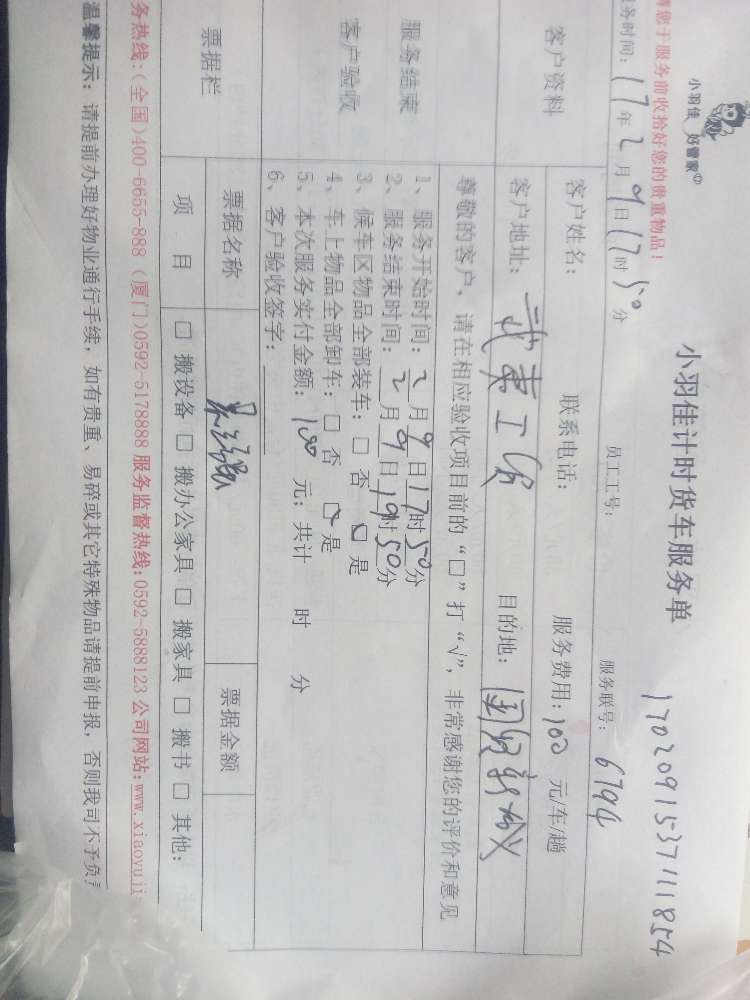 小羽佳 好管家
小羽佳计时货车服务单
1702091537111854
请您于服务前收拾好您的贵重物品！
服务时间：17年2月9日17时50分
员工工号：
服务联号：6794
客户资料
客户姓名：
联系电话：
服务费用：100元/车/趟
客户地址：
目的地：国贸新城
服务结束
客户验收
尊敬的客户，请在相应验收项目前的“□”打“√”，非常感谢您的评价和意见
1、服务开始时间：2月9日17时50分
2、服务结束时间：2月9日19时50分
3、候车区物品全部装车：□ 否 □ 是
4、车上物品全部卸车：□ 否 □ 是
5、本次服务实付金额：100元；共计 时 分
6、客户验收签字：
票据栏
票据名称
票据金额
项 目
□ 搬设备 □ 搬办公家具 □ 搬家具 □ 搬书 □ 其他：
务热线：(全国)400-6655-888 (厦门)0592-5178888 服务监督热线：0592-5888123 公司网站：www.xiaoyuji
温馨提示：请提前办理好物业通行手续，如有贵重、易碎或其它特殊物品请提前申报，否则我司不予负责